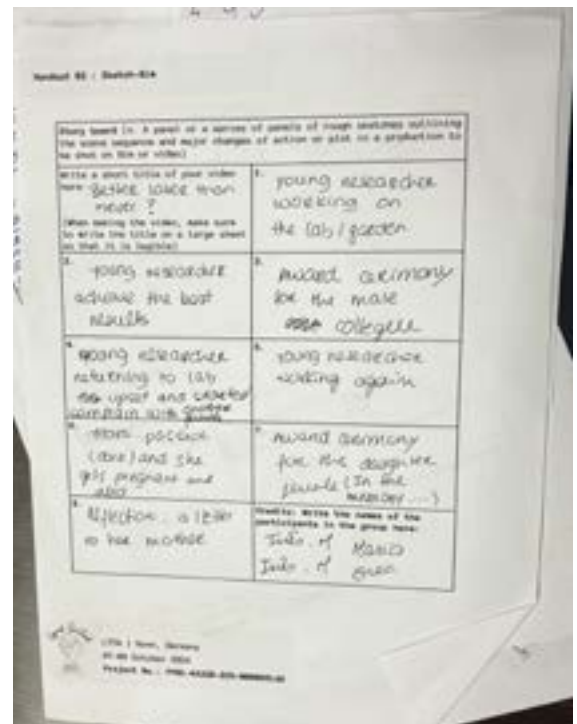 Handout 02 : Sketch-Bim
Story board is: A panel or a series of panels of rough sketches outlining
the scene sequence and major changes of action or plot in a production to
be shot on film or video)
Write a short title of your video
here Better later than
never ?
(When making the video, make sure
to write the title on a large sheet
so that it is legible)
1. young researcher
working on
the lab / garden
2. young researcher
achieve the best
results
3. Award cerimony
for the male
collegue
4. young researcher
returning to lab
upset and
complain with
5. young researcher
working again
6.
and she
gets pregnant and
7. Award cerimony
for the daughter
(In the
8. Reflection a letter
to her mother
Credits: Write the names of the
participants in the group here:
October
Project No.: